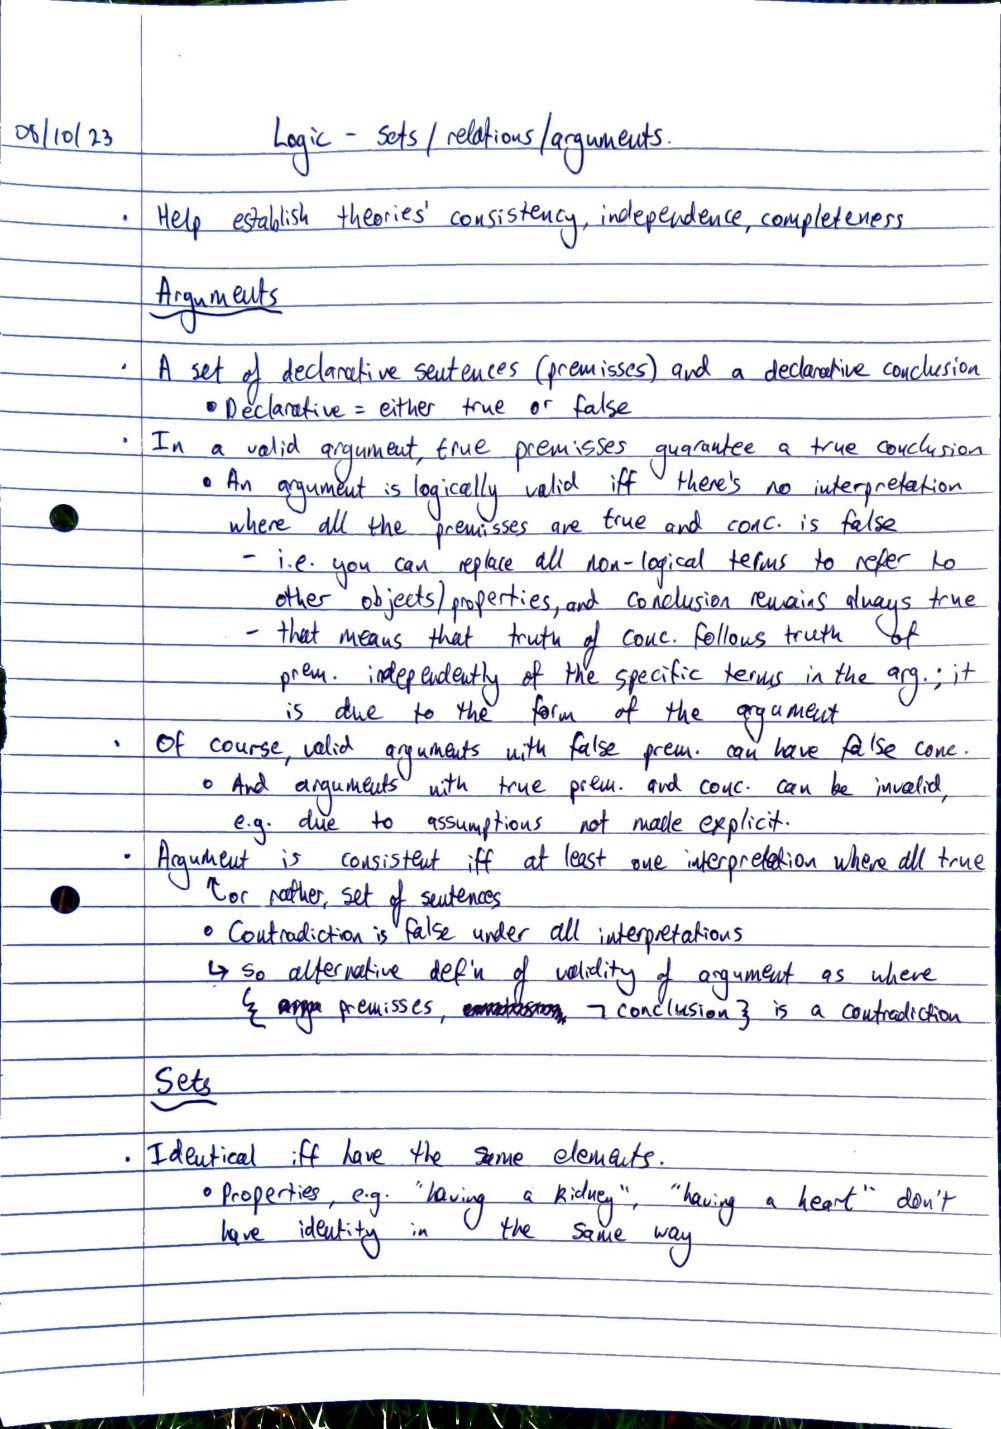 08/10/23
Logic - sets/relations/arguments.
· Help establish theories' consistency, independence, completeness
Arguments
· A set of declarative sentences (premisses) and a declarative conclusion
• Declarative = either true or false
· In a valid argument, true premisses guarantee a true conclusion
• An argument is logically valid iff there's no interpretation
where all the premisses are true and conc. is false
- i.e. you can replace all non-logical terms to refer to
other objects/properties, and conclusion remains always true
- that means that truth of conc. follows truth of
prem. independently of the specific terms in the arg.; it
is due to the form of the argument
· Of course, valid arguments with false prem. can have false conc.
• And arguments with true prem. and conc. can be invalid,
e.g. due to assumptions not made explicit.
· Argument is consistent iff at least one interpretation where all true
↑ or rather, set of sentences
• Contradiction is false under all interpretations
↳ so alternative def'n of validity of argument as where
{ premisses, ¬ conclusion } is a contradiction
Sets
· Identical iff have the same elements.
• Properties, e.g. "having a kidney", "having a heart" don't
have identity in the same way